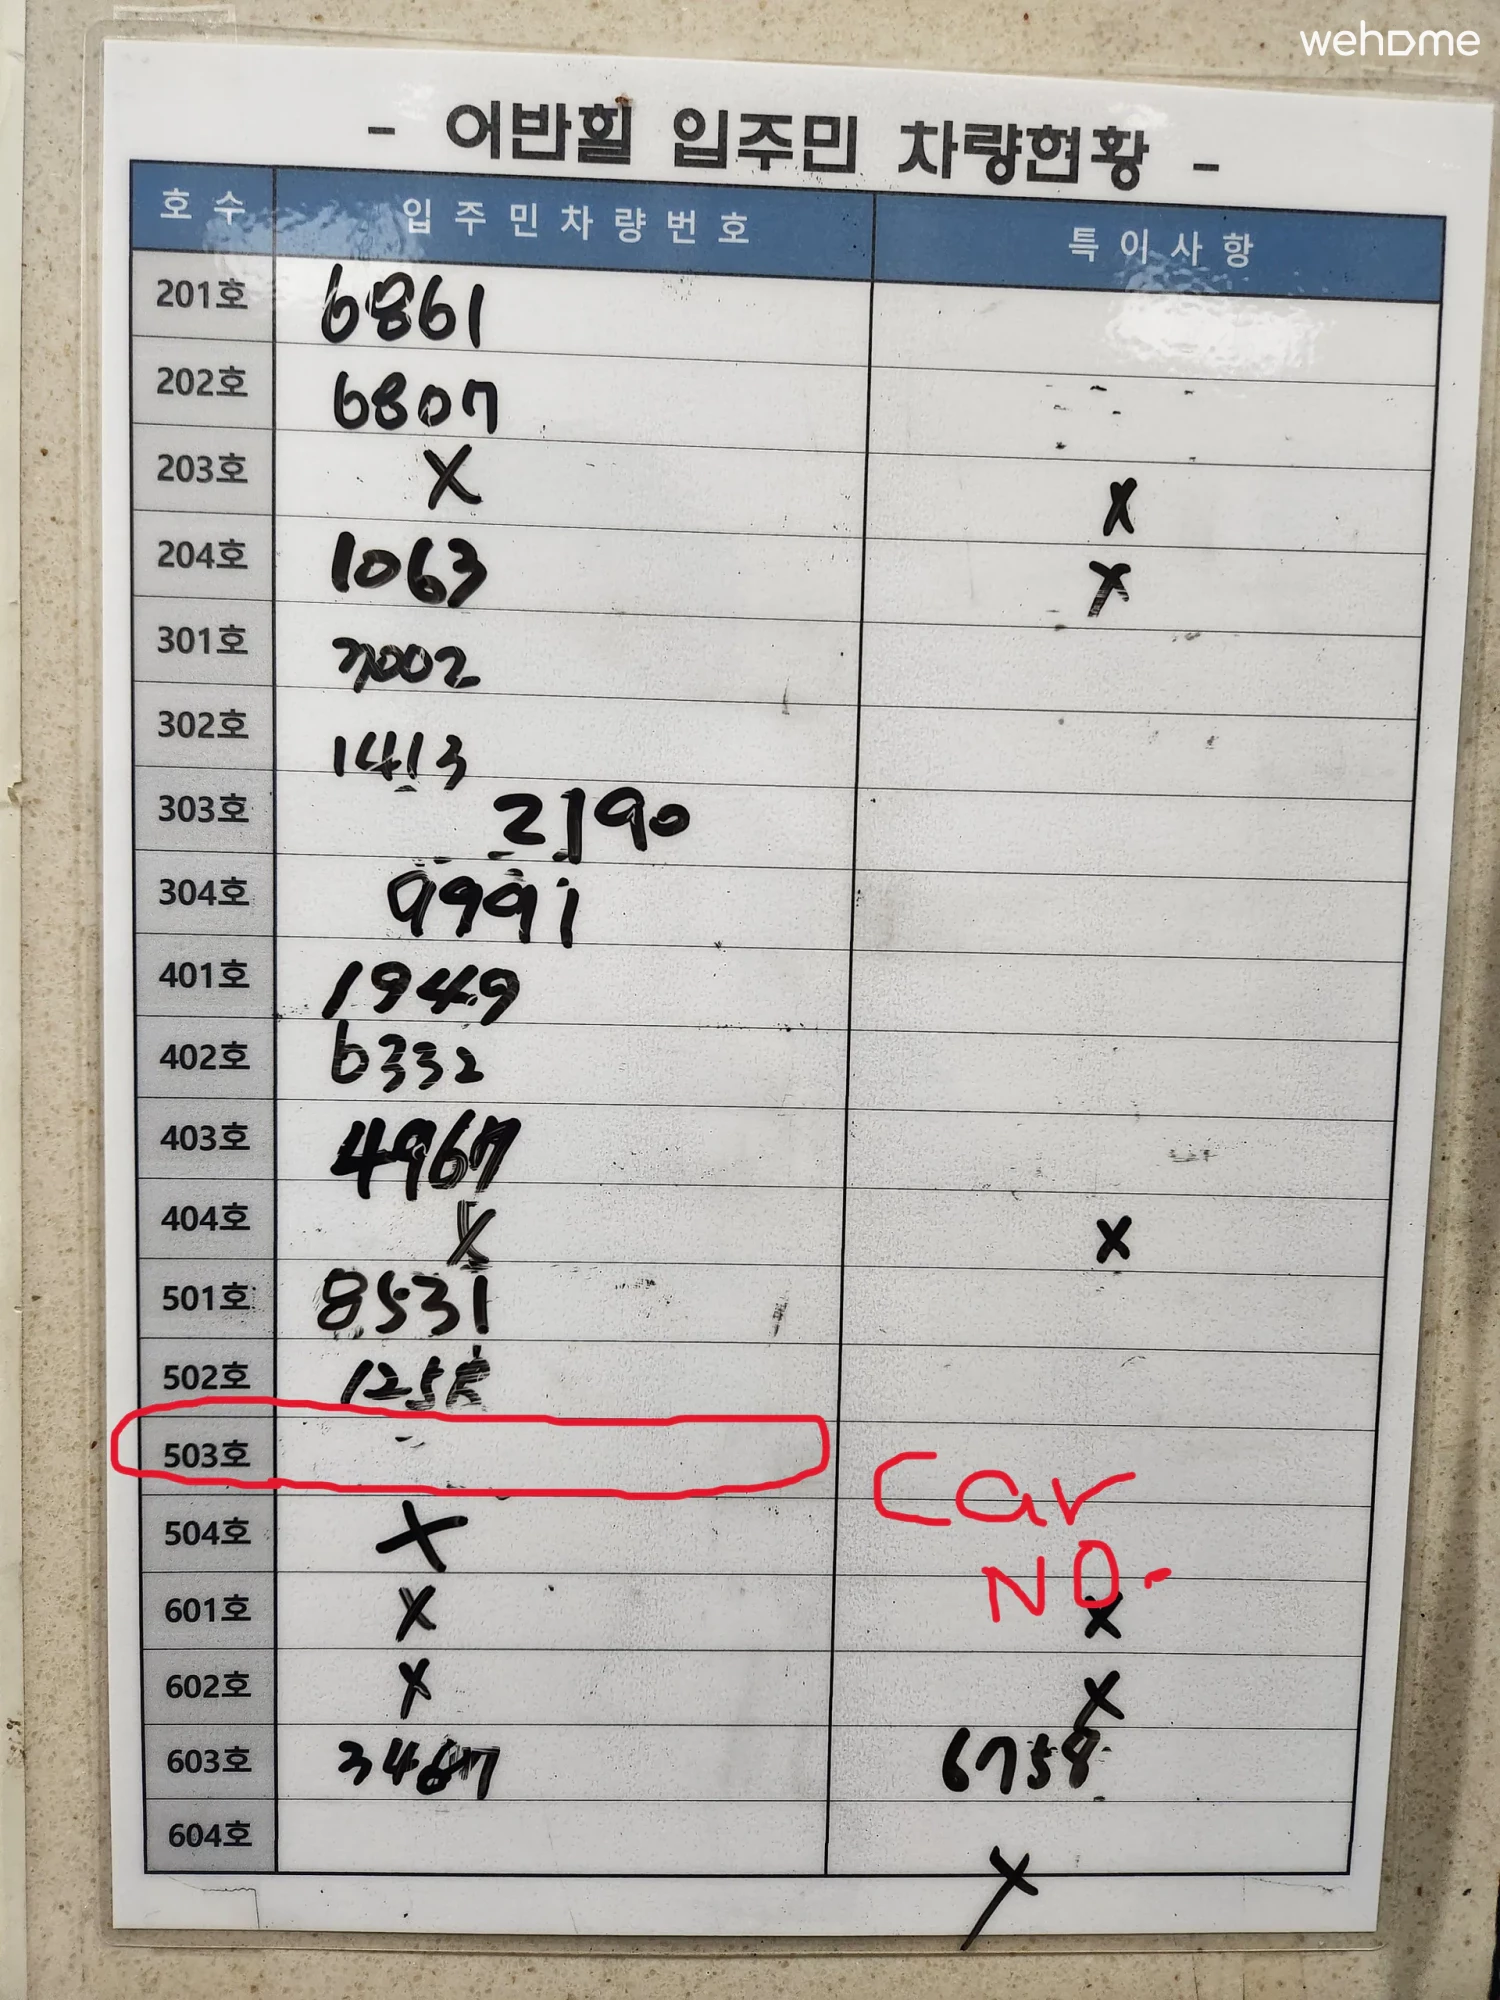 wehome
- 어반힐 입주민 차량현황 -
호수 입주민차량번호 특이사항
201호 6861
202호 6807
203호 X X
204호 1063 X
301호 7002
302호 1413
303호 2190
304호 9991
401호 1949
402호 6332
403호 4967
404호 X X
501호 8531
502호
503호
Car
NO.
504호 X
601호 X X
602호 X X
603호 3467 6758
604호 X